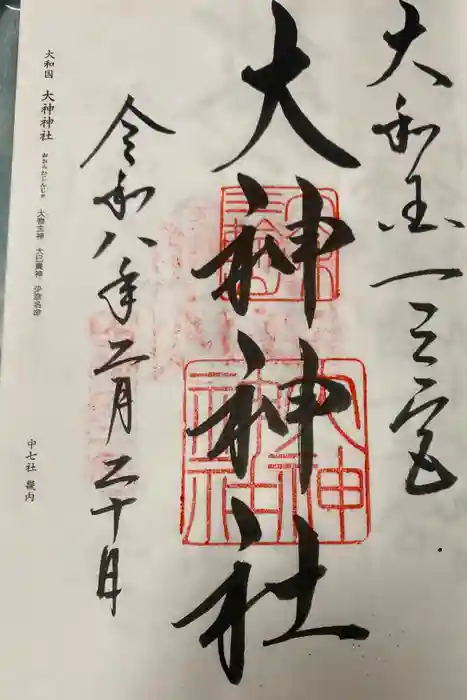 大和国一之宮
大神神社
大神
神社
令和八年二月二十日
大和国 大神神社 おおみわじんじゃ 大物主神 大己貴神 少彦名命
中七社 畿内